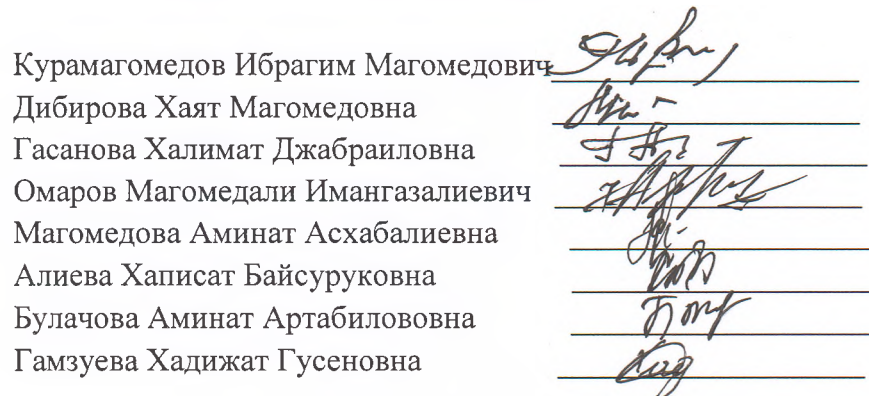 Курамагомедов Ибрагим Магомедович
Дибирова Хаят Магомедовна
Гасанова Халимат Джабраиловна
Омаров Магомедали Имангазалиевич
Магомедова Аминат Асхабалиевна
Алиева Хаписат Байсуруковна
Булачова Аминат Артабилововна
Гамзуева Хадижат Гусеновна